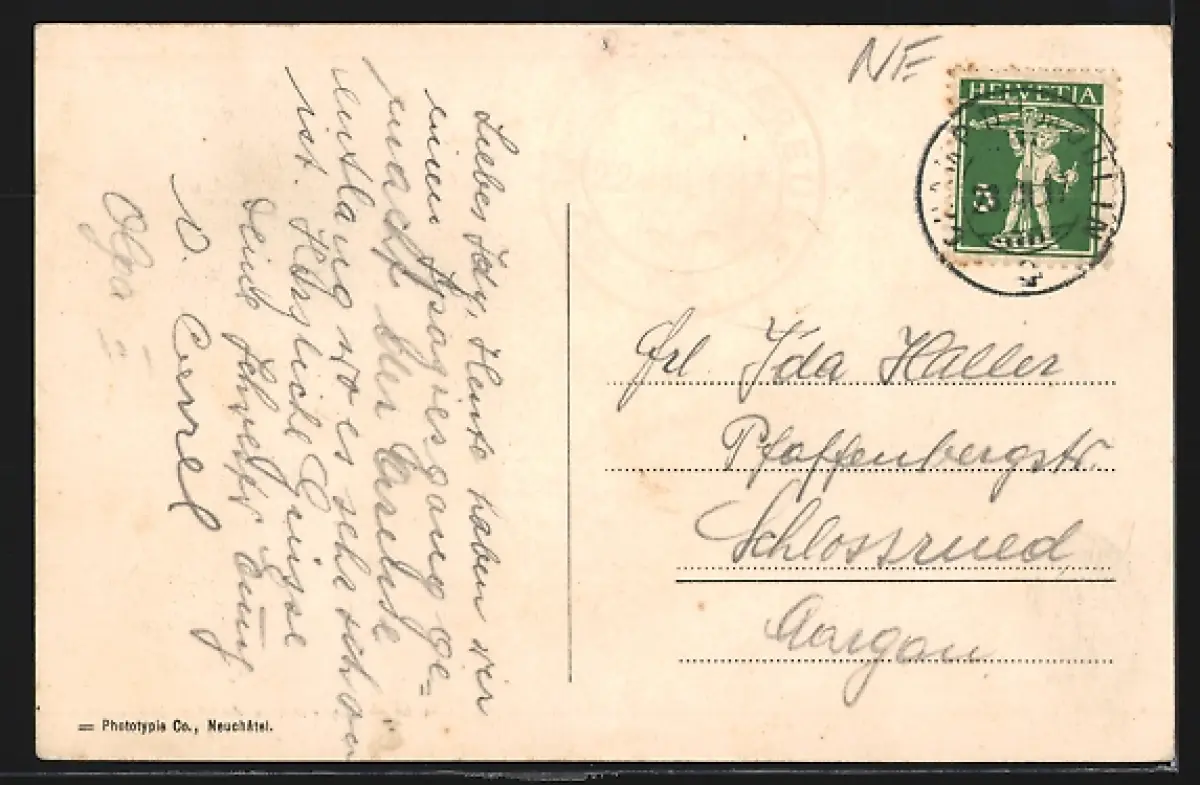 NE
HELVETIA
5
Liebes Idy, Heute haben wir
einen Spaziergang ge=
macht der Areuse
entlang wo es sehr schön
ist. Herzliche Grüsse
Deine Schwester Emmy
V. Cornel
Olga
Frl Ida Haller
Pfaffenbergstr.
Schlossrued
Aargau
= Phototypie Co., Neuchâtel.